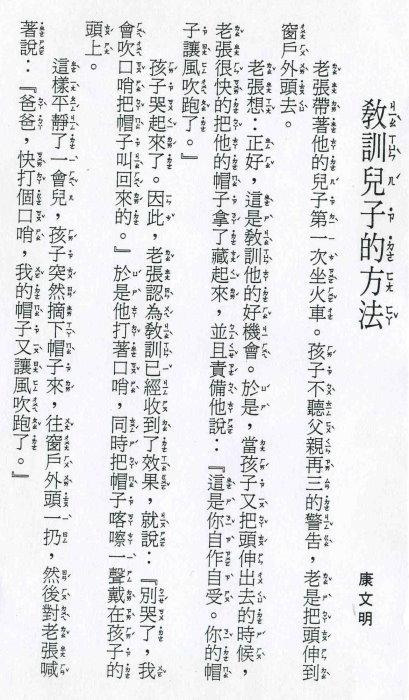 教訓兒子的方法
康文明
老張帶著他的兒子第一次坐火車。孩子不聽父親再三的警告，老是把頭伸到
窗戶外頭去。
老張想：正好，這是教訓他的好機會。於是，當孩子又把頭伸出去的時候，
老張很快的把他的帽子拿了藏起來，並且責備他說：『這是你自作自受。你的帽
子讓風吹跑了。』
孩子哭起來了。因此，老張認為教訓已經收到了效果，就說：『別哭了，我
會吹口哨把帽子叫回來的。』於是他打著口哨，同時把帽子喀嚓一聲戴在孩子的
頭上。
這樣平靜了一會兒，孩子突然摘下帽子來，往窗戶外頭一扔，然後對老張喊
著說：『爸爸，快打個口哨，我的帽子又讓風吹跑了。』